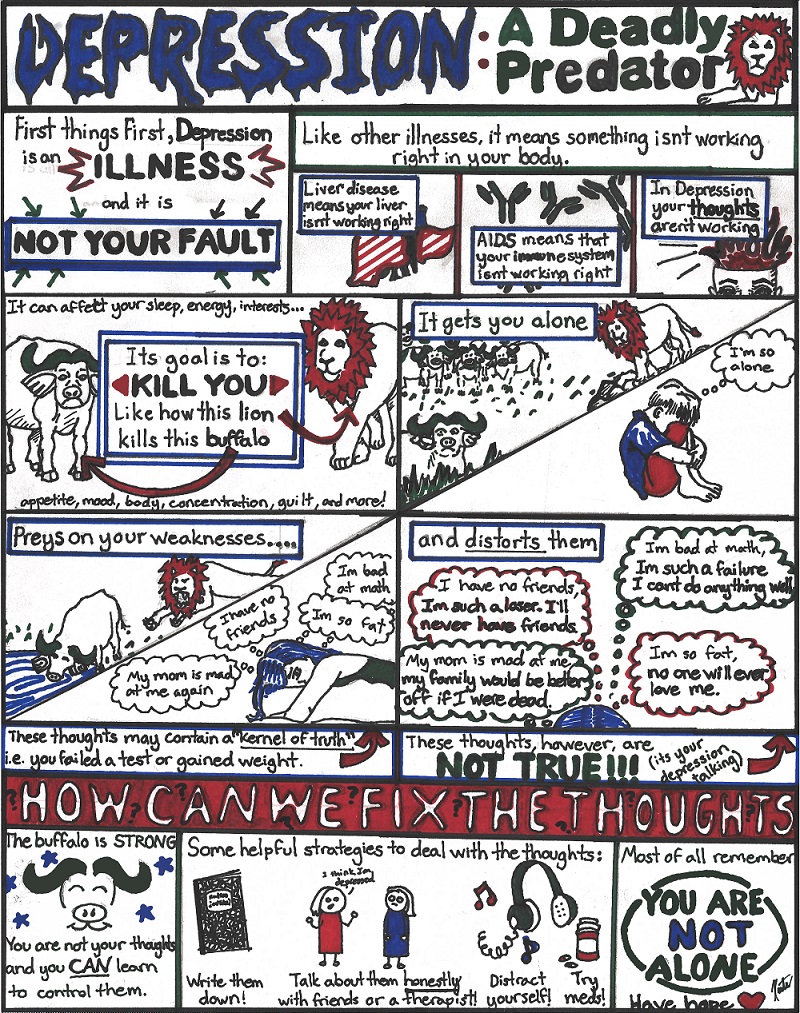 DEPRESSION: A Deadly
Predator
First things First, Depression
is an ILLNESS
and it is
NOT YOUR FAULT
Like other illnesses, it means something isnt working
right in your body.
Liver disease
means your liver
isnt working right
AIDS means that
your immune system
isnt working right
In Depression
your thoughts
arent working
It can affect your sleep, energy, interests...
Its goal is to:
KILL YOU
Like how this lion
kills this buffalo
appetite, mood, body, concentration, guilt, and more!
It gets you alone
I'm so
alone
Preys on your weaknesses....
Im bad
at math
I have no
friends
Im so fat
My mom is mad
at me again
and distorts them
Im bad at math,
Im such a failure
I cant do anything well
I have no friends,
Im such a loser. I'll
never have friends.
My mom is mad at me,
my family would be better
off if I were dead.
Im so fat,
no one will ever
love me.
These thoughts may contain a "kernel of truth"
i.e. you failed a test or gained weight.
These thoughts, however, are
NOT TRUE!!!
(its your
depression
talking)
?HOW CAN WE FIX THE THOUGHTS
The buffalo is STRONG
You are not your thoughts
and you CAN learn
to control them.
Some helpful strategies to deal with the thoughts:
I think Im
depressed
Write them
down!
Talk about them honestly
with friends or a therapist!
Distract
yourself!
Try
meds!
Most of all remember
YOU ARE
NOT
ALONE
Have hope